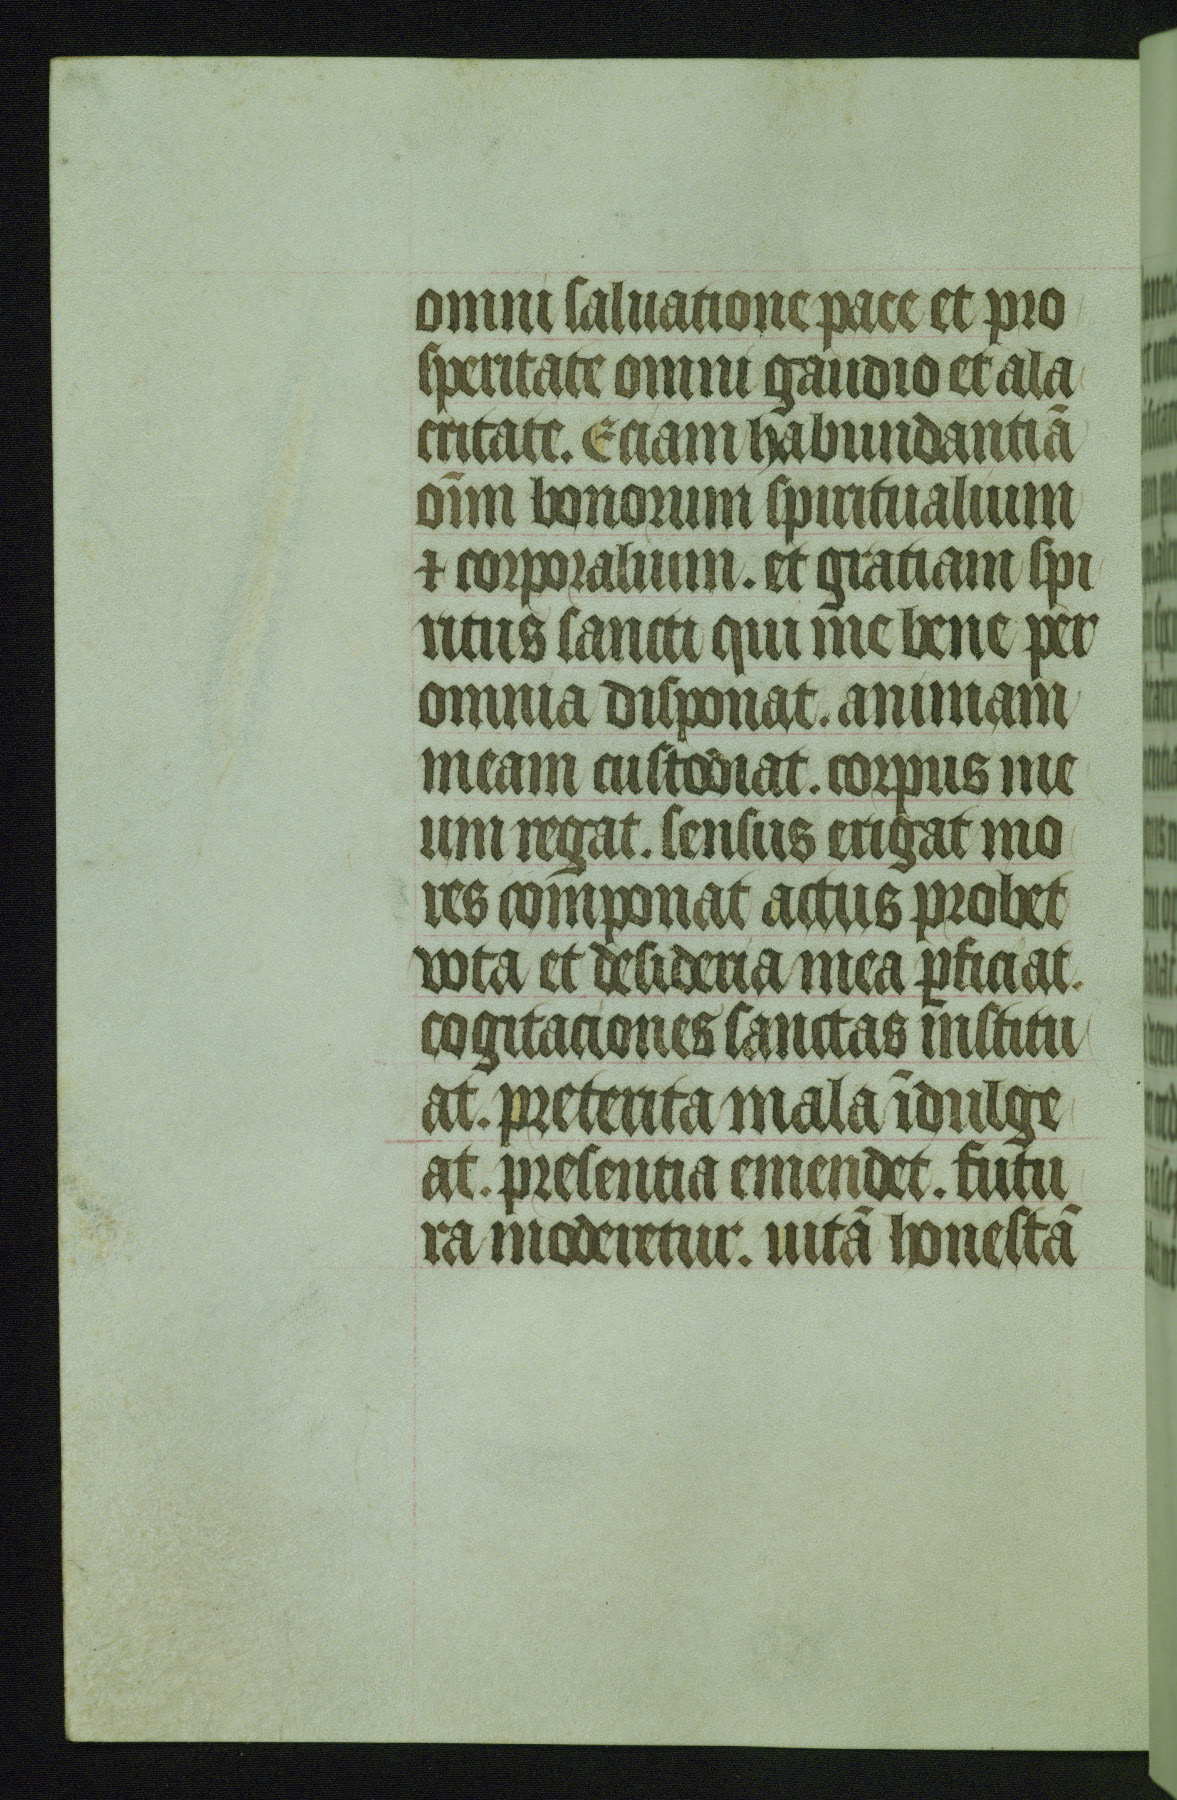 omni saluatione pace et pro
speritate omni gaudio et ala
critate. Eciam habundantiã
oĩm bonorum spiritualium
⁊ corporalium. et gratiam spi
ritus sancti qui me bene per
omnia disponat. animam
meam custodiat. corpus me
um regat. sensus erigat mo
res componat actus probet
vota et desideria mea ꝑficiat.
cogitaciones sanctas institu
at. preterita mala ĩdulge
at. presentia emendet. futu
ra moderetur. uitã honestã